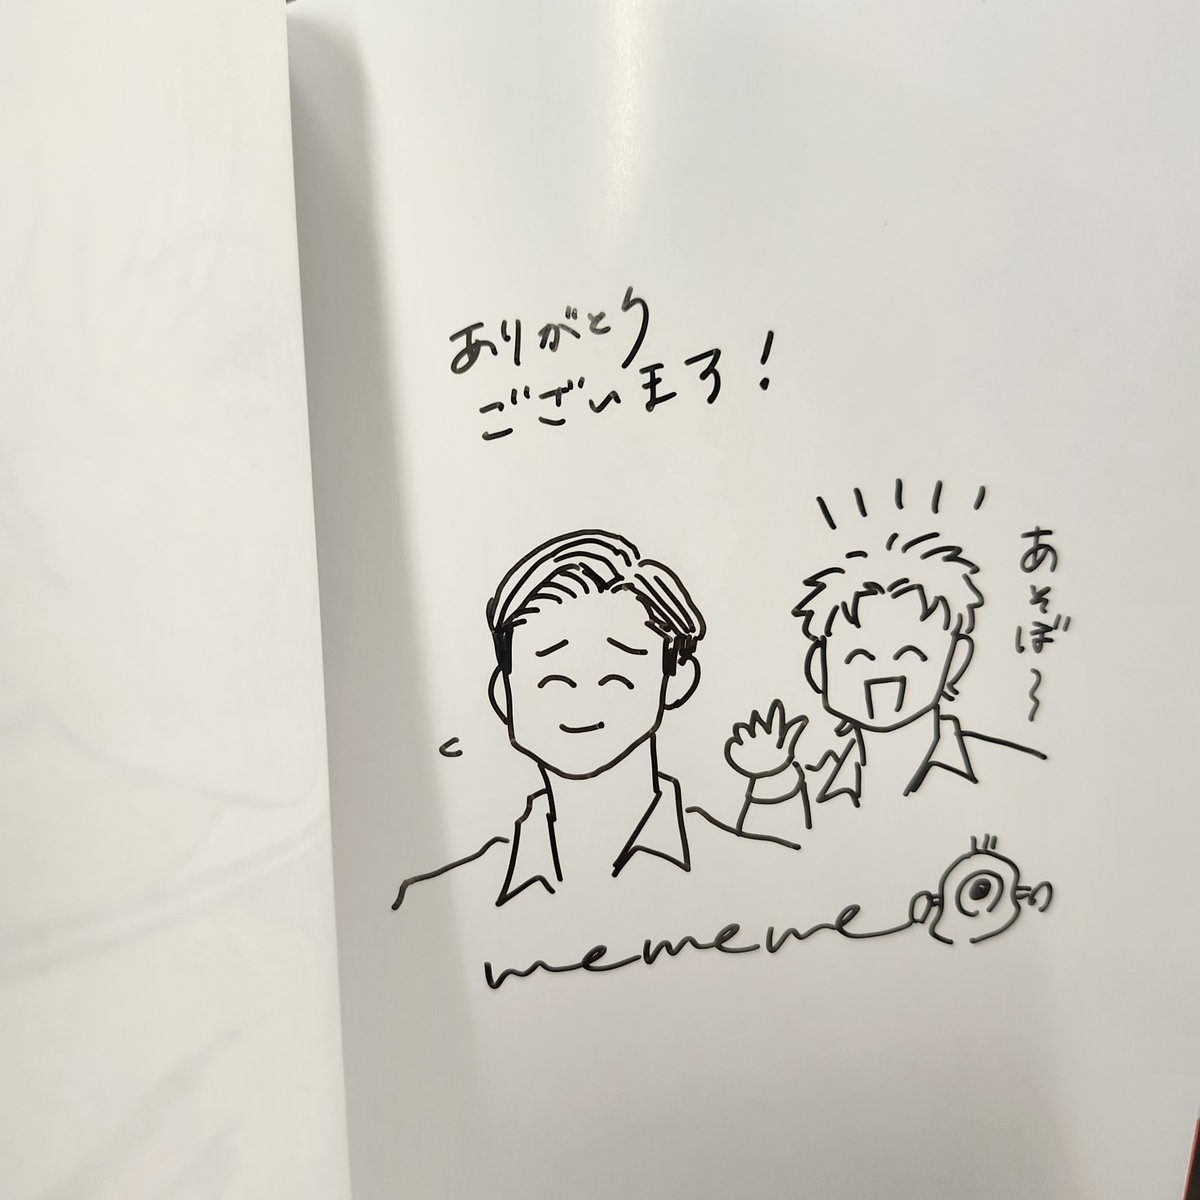 ありがとう
ございます!
あそぼ〜
mememe